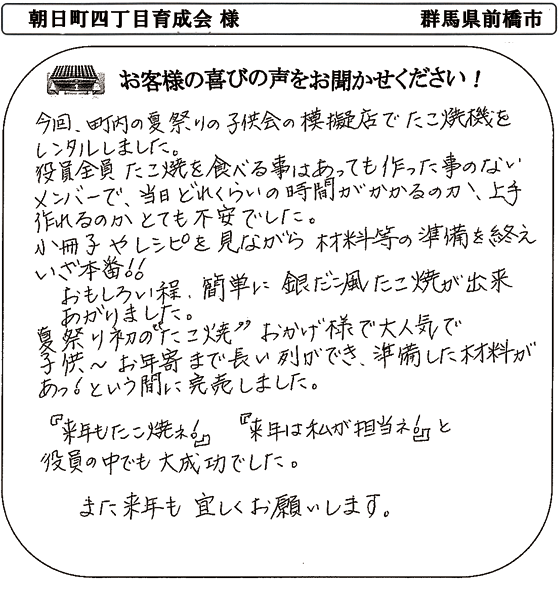 朝日町四丁目育成会 様 群馬県前橋市
お客様の喜びの声をお聞かせください！
今回、町内の夏祭りの子供会の模擬店でたこ焼機を
レンタルしました。
役員全員 たこ焼を食べる事はあっても作った事のない
メンバーで、当日どれくらいの時間がかかるのか、上手
作れるのかとても不安でした。
小冊子やレシピを見ながら 材料等の準備を終え
いざ本番！！
おもしろい程、簡単に 銀だこ風たこ焼が出来
あがりました。
夏祭り初の"たこ焼" おかげ様で大人気で
子供～お年寄まで長い列ができ、準備した材料が
あっ！という間に完売しました。
『来年もたこ焼ネ！』 『来年は私が担当ネ！』と
役員の中でも大成功でした。
また来年も 宜しくお願いします。